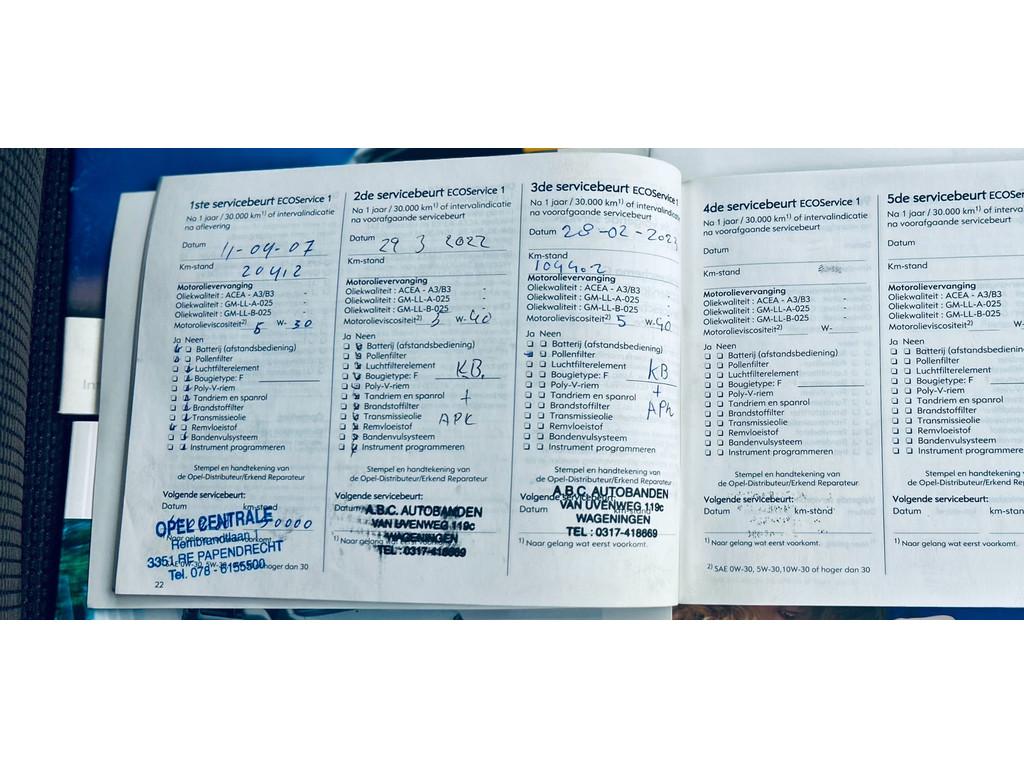 1ste servicebeurt ECOService 1
Na 1 jaar / 30.000 km1) of intervalindicatie
na aflevering
Datum 11-09-07
Km-stand 20412
Motorolievervanging
Oliekwaliteit : ACEA - A3/B3 -
Oliekwaliteit : GM-LL-A-025 -
Oliekwaliteit : GM-LL-B-025 -
Motorolieviscositeit2) 5 W- 30
Ja Neen
Batterij (afstandsbediening)
Pollenfilter
Luchtfilterelement
Bougietype: F
Poly-V-riem
Tandriem en spanrol
Brandstoffilter
Transmissieolie
Remvloeistof
Bandenvulsysteem
Instrument programmeren
Stempel en handtekening van
de Opel-Distributeur/Erkend Reparateur
Volgende servicebeurt:
Datum km-stand
OPEL CENTRALE
Rembrandtlaan 1
3351 RE PAPENDRECHT
Tel. 078 - 6155500
22
2de servicebeurt ECOService 1
Na 1 jaar / 30.000 km1) of intervalindicatie
na voorafgaande servicebeurt
Datum 29 3 2022
Km-stand
Motorolievervanging
Oliekwaliteit : ACEA - A3/B3 -
Oliekwaliteit : GM-LL-A-025 -
Oliekwaliteit : GM-LL-B-025 -
Motorolieviscositeit2) 5 W-40
Ja Neen
Batterij (afstandsbediening)
Pollenfilter
Luchtfilterelement KB.
Bougietype: F
Poly-V-riem
Tandriem en spanrol +
Brandstoffilter
Transmissieolie APK
Remvloeistof
Bandenvulsysteem
Instrument programmeren
Stempel en handtekening van
de Opel-Distributeur/Erkend Reparateur
Volgende servicebeurt:
Datum
A.B.C. AUTOBANDEN
VAN UVENWEG 119c
WAGENINGEN
TEL : 0317-418669
1) Naar gelang wat eerst voorkomt.
3de servicebeurt ECOService
Na 1 jaar / 30.000 km1) of intervalindicatie
na voorafgaande servicebeurt
Datum 28-02-2023
Km-stand 104402
Motorolievervanging
Oliekwaliteit : ACEA - A3/B3 -
Oliekwaliteit : GM-LL-A-025 -
Oliekwaliteit : GM-LL-B-025 -
Motorolieviscositeit2) 5 W-40
Ja Neen
Batterij (afstandsbediening)
Pollenfilter
Luchtfilterelement KB
Bougietype: F
Poly-V-riem
Tandriem en spanrol +
Brandstoffilter APK
Transmissieolie
Remvloeistof
Bandenvulsysteem
Instrument programmeren
Stempel en handtekening van
de Opel-Distributeur/Erkend Reparateur
Volgende servicebeurt:
Datum km-stand
A.B.C. AUTOBANDEN
VAN UVENWEG 119c
WAGENINGEN
TEL : 0317-418669
1) Naar gelang wat eerst voorkomt.
4de servicebeurt ECOService 1
Na 1 jaar / 30.000 km1) of intervalindicatie
na voorafgaande servicebeurt
Datum
Km-stand
Motorolievervanging
Oliekwaliteit : ACEA - A3/B3 -
Oliekwaliteit : GM-LL-A-025 -
Oliekwaliteit : GM-LL-B-025 -
Motorolieviscositeit2) W-
Ja Neen
Batterij (afstandsbediening)
Pollenfilter
Luchtfilterelement
Bougietype: F
Poly-V-riem
Tandriem en spanrol
Brandstoffilter
Transmissieolie
Remvloeistof
Bandenvulsysteem
Instrument programmeren
Stempel en handtekening van
de Opel-Distributeur/Erkend Reparateur
Volgende servicebeurt:
Datum km-stand
1) Naar gelang wat eerst voorkomt.
2) SAE 0W-30, 5W-30,10W-30 of hoger dan 30
5de servicebeurt ECOSer
Na 1 jaar / 30.000 km1) of
na voorafgaande servicebeurt
Datum
Km-stand
Motorolievervanging
Oliekwaliteit : ACEA - A3/B3
Oliekwaliteit : GM-LL-A-025
Oliekwaliteit : GM-LL-B-025
Motorolieviscositeit2) W-
Ja Neen
Batterij (afstandsbedien
Pollenfilter
Luchtfilterelement
Bougietype: F
Poly-V-riem
Tandriem en spanrol
Brandstoffilter
Transmissieolie
Remvloeistof
Bandenvulsysteem
Instrument programme
Stempel en handtekening
de Opel-Distributeur/Erkend
Volgende servicebeurt:
Datum km-stan
1) Naar gelang wat eerst voorkom